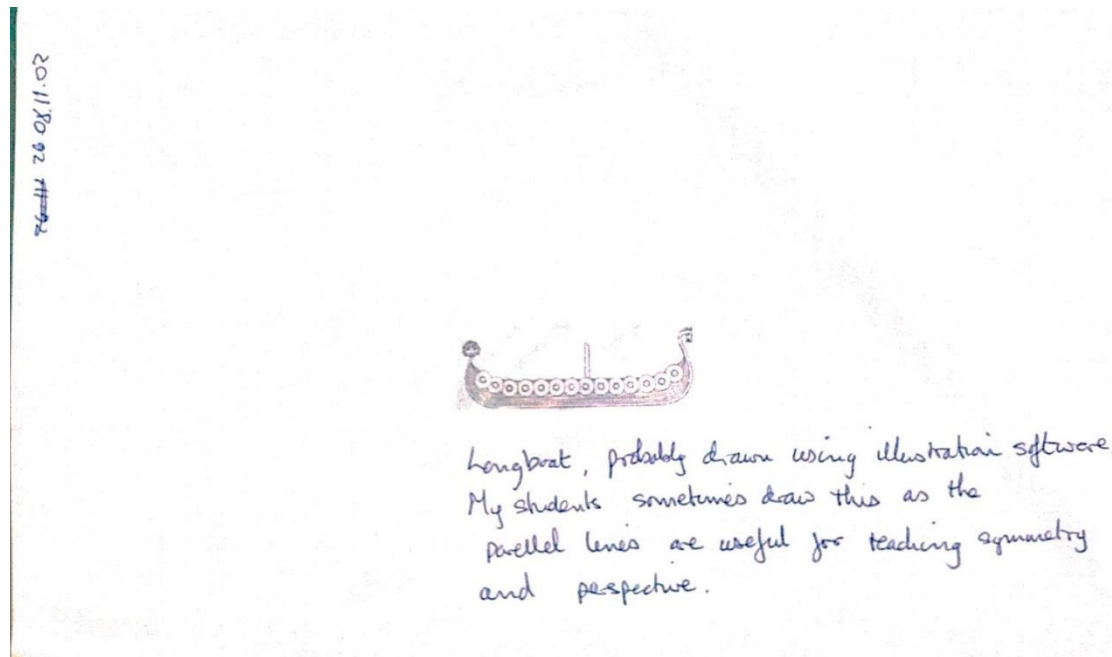 20.11.80 92
Longboat, probably drawn using illustration software.
My students sometimes draw this as the
parellel lines are useful for teaching symmetry
and perspective.